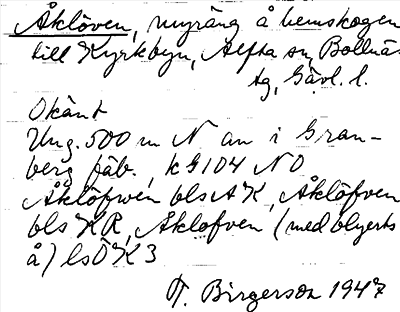 Åklöven, myräng å hemskogen
till Kyrkbyn, Alfta sn, Bollnäs
tg, Gävl. l.
Okänt
Ung. 500 m N an i Gran-
berg fäb., kG104 NO
Åklöfwen blsAK, Åklöfven
bls KR, Åklofven (med blyerts
å) lsÖK3
T. Birgerson 1947